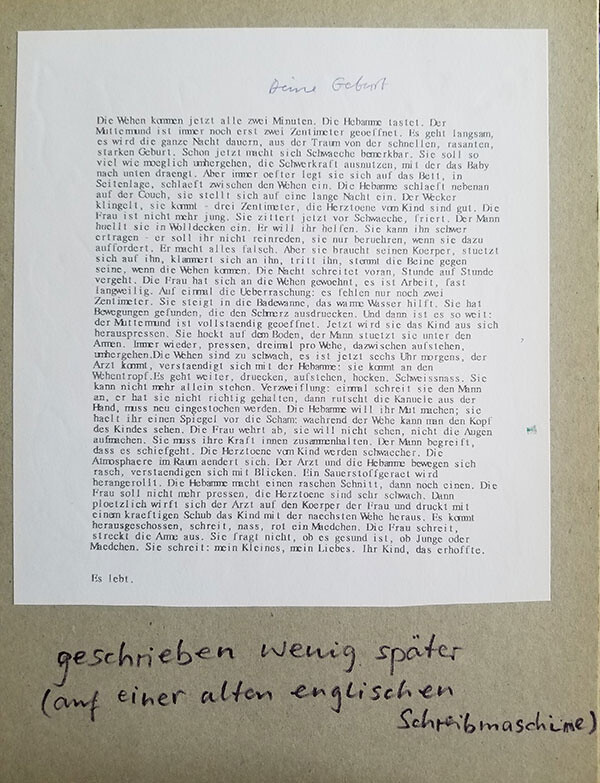 Deine Geburt
Die Wehen kommen jetzt alle zwei Minuten. Die Hebamme tastet. Der
Muttermund ist immer noch erst zwei Zentimeter geoeffnet. Es geht langsam,
es wird die ganze Nacht dauern, aus der Traum von der schnellen, rasanten,
starken Geburt. Schon jetzt macht sich Schwaeche bemerkbar. Sie soll so
viel wie moeglich umhergehen, die Schwerkraft ausnutzen, mit der das Baby
nach unten draengt. Aber immer oefter legt sie sich auf das Bett, in
Seitenlage, schlaeft zwischen den Wehen ein. Die Hebamme schlaeft nebenan
auf der Couch, sie stellt sich auf eine lange Nacht ein. Der Wecker
klingelt, sie kommt - drei Zentimeter, die Herztoene vom Kind sind gut. Die
Frau ist nicht mehr jung. Sie zittert jetzt vor Schwaeche, friert. Der Mann
huellt sie in Wolldecken ein. Er will ihr helfen. Sie kann ihn schwer
ertragen - er soll ihr nicht reinreden, sie nur beruehren, wenn sie dazu
auffordert. Er macht alles falsch. Aber sie braucht seinen Koerper, stuetzt
sich auf ihn, klammert sich an ihn, tritt ihn, stemmt die Beine gegen
seine, wenn die Wehen kommen. Die Nacht schreitet voran, Stunde auf Stunde
vergeht. Die Frau hat sich an die Wehen gewoehnt, es ist Arbeit, fast
langweilig. Auf einmal die Ueberraschung: es fehlen nur noch zwei
Zentimeter. Sie steigt in die Badewanne, das warme Wasser hilft. Sie hat
Bewegungen gefunden, die den Schmerz ausdruecken. Und dann ist es so weit:
der Muttermund ist vollstaendig geoeffnet. Jetzt wird sie das Kind aus sich
herauspressen. Sie hockt auf dem Boden, der Mann stuetzt sie unter den
Armen. Immer wieder, pressen, dreimal pro Wehe, dazwischen aufstehen,
umhergehen.Die Wehen sind zu schwach, es ist jetzt sechs Uhr morgens, der
Arzt kommt, verstaendigt sich mit der Hebamme: sie kommt an den
Wehentropf.Es geht weiter, druecken, aufstehen, hocken. Schweissnass. Sie
kann nicht mehr allein stehen. Verzweiflung: einmal schreit sie den Mann
an, er hat sie nicht richtig gehalten, dann rutscht die Kanuele aus der
Hand, muss neu eingestochen werden. Die Hebamme will ihr Mut machen; sie
haelt ihr einen Spiegel vor die Scham: waehrend der Wehe kann man den Kopf
des Kindes sehen. Die Frau wehrt ab, sie will nicht sehen, nicht die Augen
aufmachen. Sie muss ihre Kraft innen zusammenhalten. Der Mann begreift,
dass es schiefgeht. Die Herztoene vom Kind werden schwaecher. Die
Atmosphaere im Raum aendert sich. Der Arzt und die Hebamme bewegen sich
rasch, verstaendigen sich mit Blicken. Ein Sauerstoffgeraet wird
herangerollt. Die Hebamme macht einen raschen Schnitt, dann noch einen. Die
Frau soll nicht mehr pressen, die Herztoene sind sehr schwach. Dann
ploetzlich wirft sich der Arzt auf den Koerper der Frau und druckt mit
einem kraeftigen Schub das Kind mit der naechsten Wehe heraus. Es kommt
herausgeschossen, schreit, nass, rot ein Maedchen. Die Frau schreit,
streckt die Arme aus. Sie fragt nicht, ob es gesund ist, ob Junge oder
Maedchen. Sie schreit: mein Kleines, mein Liebes. Ihr Kind, das erhoffte.
Es lebt.
geschrieben wenig später
(auf einer alten englischen
Schreibmaschine)